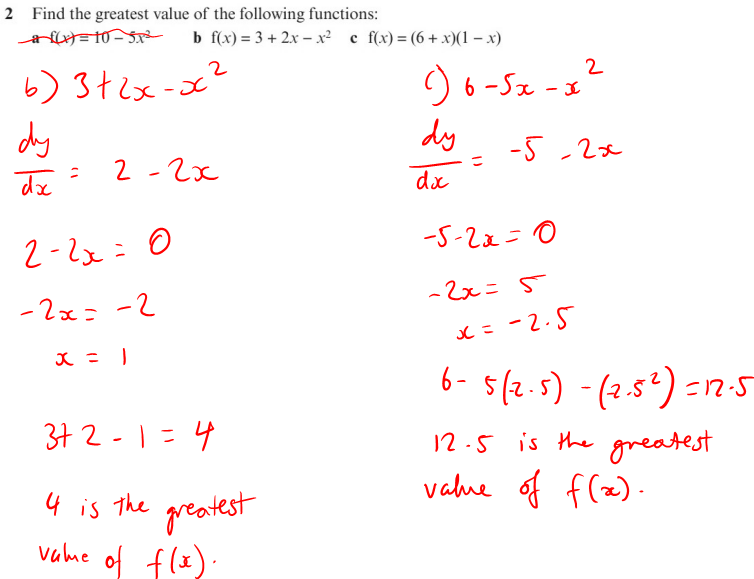 2 Find the greatest value of the following functions:
a f(x) = 10 − 5x² b f(x) = 3 + 2x − x² c f(x) = (6 + x)(1 − x)
b) 3+2x-x²
dy/dx = 2 - 2x
2-2x = 0
-2x = -2
x = 1
3+2-1 = 4
4 is the greatest
value of f(x).
c) 6-5x-x²
dy/dx = -5-2x
-5-2x = 0
-2x = 5
x = -2.5
6- 5(2.5) -(2.5²) = 12.5
12.5 is the greatest
value of f(x).